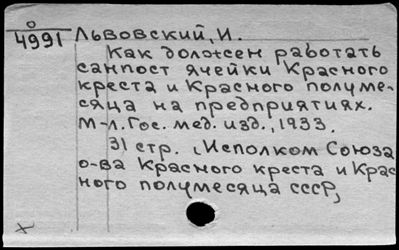 О
4991 Львовский, И.
Как должен работать
санпост ячейки Красного
креста и Красного полуме-
сяца на предприятиях.
М-л. Гос. мед. изд., 1933.
31 стр. (Исполком Союза
о-ва Красного креста и Крас
ного полумесяца СССР)
х